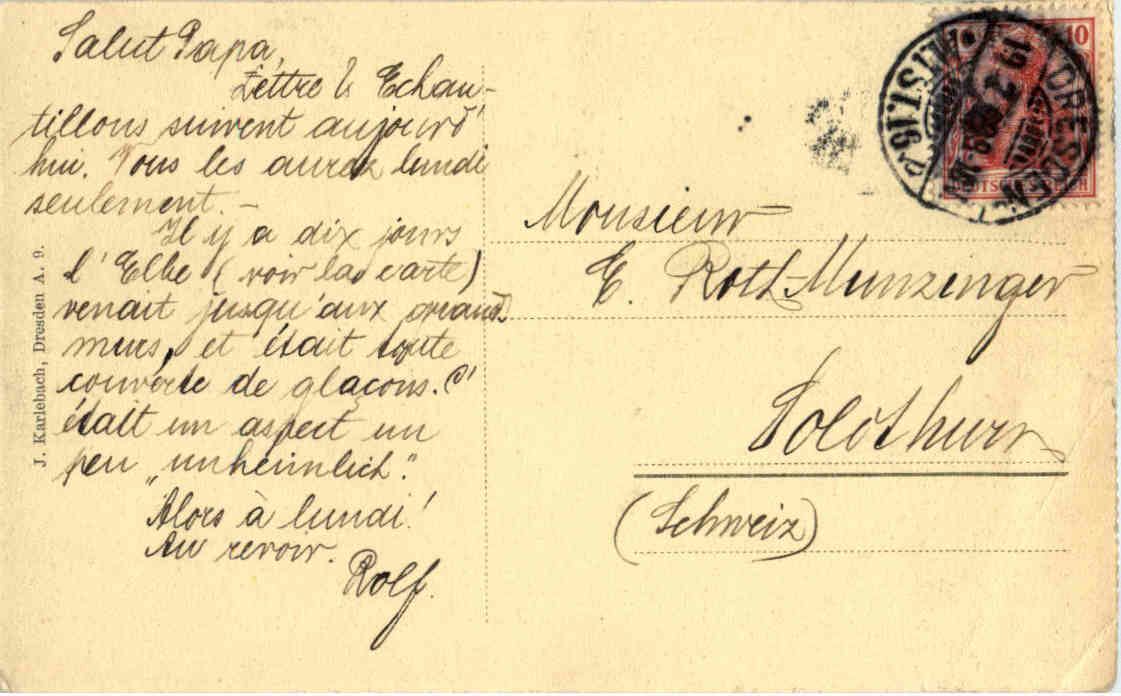 Salut Papa,
Lettre & Echan-
tillons suivent aujourd'
hui. Vous les aurez lundi
seulement. –
Il y a dix jours
l'Elbe (voir la carte)
venait jusqu'aux grands
murs, et était toute
couverte de glaçons. C'
était un aspect un
peu „unheimlich".
Alors à lundi!
Au revoir.
Rolf.
J. Karlebach, Dresden A. 9.
Monsieur
E. Roth-Munzinger
Solothurn
(Schweiz)
10
DRESDEN
ALTST. 16
19 3